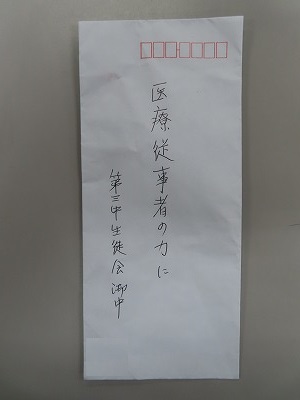 医療従事者の力に
第三中生徒会御中